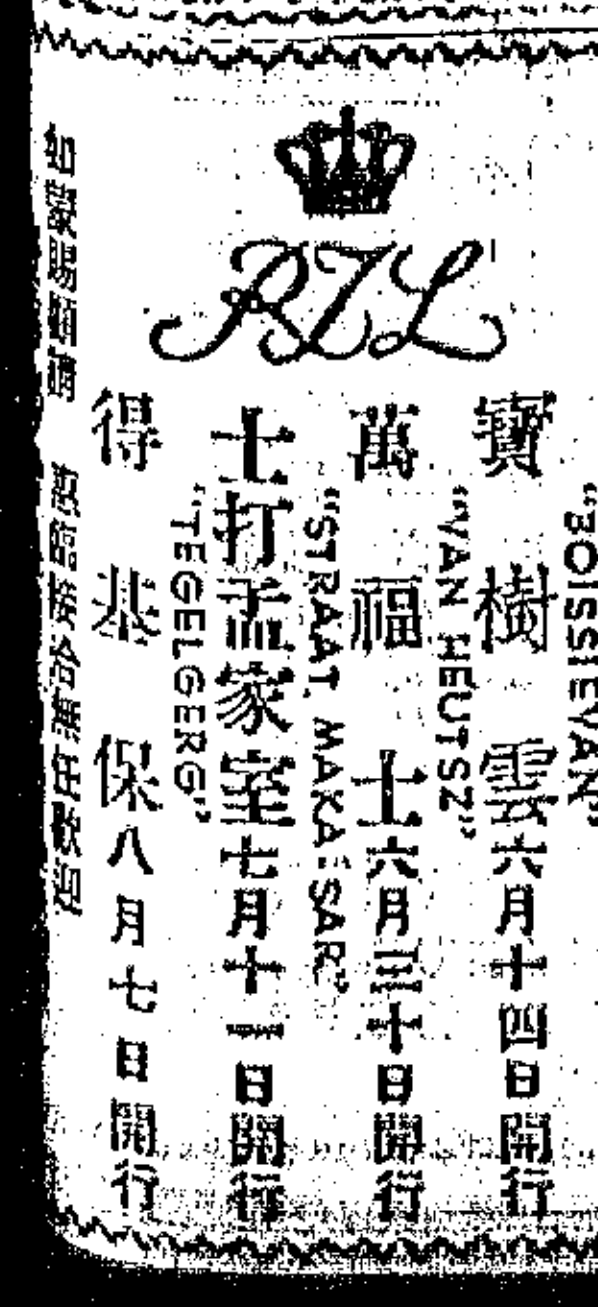 RIL
"BOISSIEVAN"
寶樹雲六月十四日開行
"VAN HEUTSZ"
萬福士六月三十日開行
"STRAAT MAKASSAR"
士打孟家室七月十一日開行
"TEGELGERG"
得基保八月七日開行
如蒙賜顧請 無任歡迎